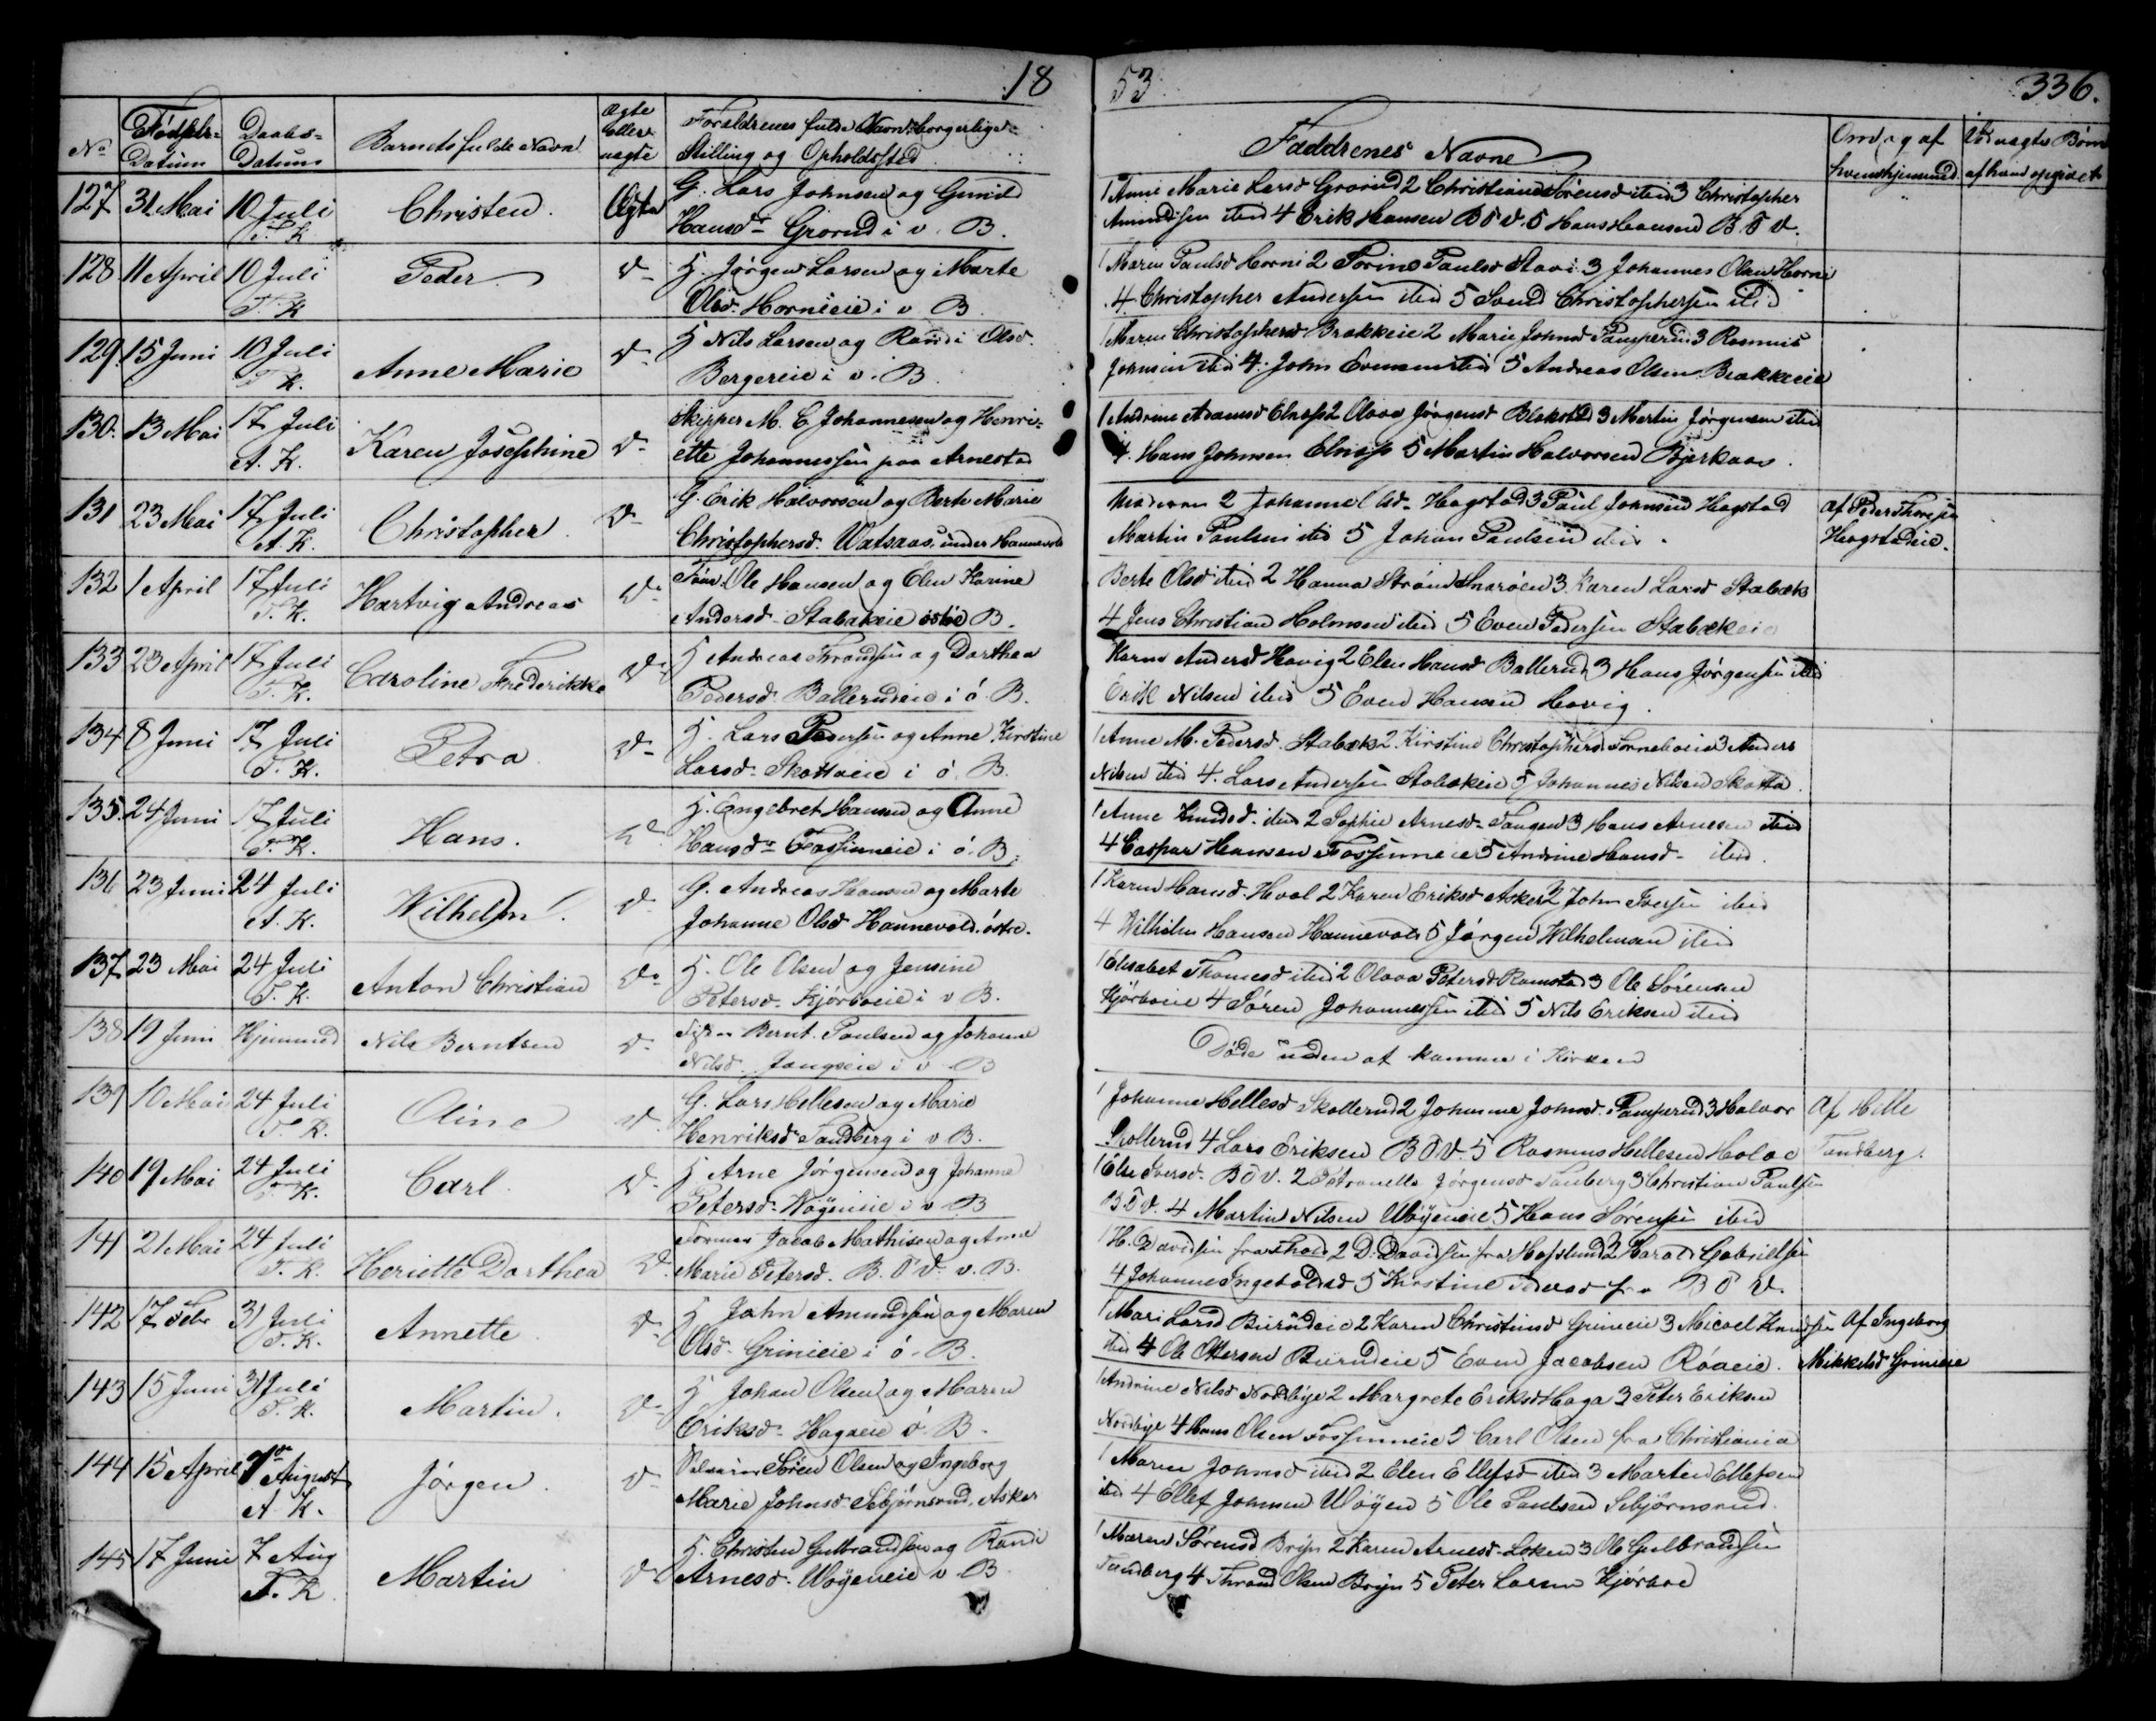 18
53
336.
No
Fødsels-
Datum
Daabs-
Datum
Barnets fulde Navn
Ægte
eller
uægte
Forældrenes fulde Navn, borgerlige
Stilling og Opholdssted
Faddrenes Navne
127 31 Mai 10 Juli Christen. Ægte G. Lars Johnsen og Gunild
T. K. Hansd- Grorud i v. B.
1 Anne Marie Larsd Grorud 2 Christiane Sørensd ibid 3 Christopher
Amundsen ibid 4 Erik Hansen B T V. 5 Hans Hansen B T V.
128 11 April 10 Juli Peder. D- H. Jørgen Larsen og Marte
T. K Olsd. Hornieie i v B
1 Maren Paulsd Horni 2 Torine Paulsd Stavi 3 Johannes Olsen Horni
4. Christopher Andersen ibid 5 Svend Christophersen ibid
129. 15 Juni 10 Juli Anne Marie D- H Nils Larsen og Randi Olsd.
T K. Bergereie i v. B
1 Maren Christophersd Brækkeie 2 Marie Johnsd Tamperud 3 Rasmus
Johnsen ibid 4. John Evensen ibid 5 Andreas Olsen Brækkeeie
130. 13 Mai 17 Juli Karen Josephine D- Skipper M. C Johannesen og Henri-
A. K. ette Johannessen paa Arnestad
1 Andrine Adamsd Elnæs 2 Olava Jørgensd Blakstad 3 Martin Jørgensen ibid
4. Hans Johnsen Elnæs 5 Martin Halvorsen Bjerkaas.
131 23 Mai 17 Juli Christopher. D- G. Erik Halvorsen og Berte Marie
A. K. Christophersd. Watsaas, under Hannevold
Moderen 2 Johanne Olsd- Hogstad 3 Paul Johnsen Hogstad
Martin Paulsen ibid 5 Johan Paulsen ibid.
af Peder Thoresen
Hogstadeie.
132 1 April 17 Juli Hartvig Andreas D- Tøm. Ole Hansen og Elen Karine
T. K. Andersd- Stabækeie østre B.
Berte Olsd ibid 2 Hanna Strøm Snarøen 3. Karen Larsd Stabæk
4 Jens Christian Holmsen ibid 5 Even Pedersen Stabækeie
133 23 April 17 Juli Caroline Frederikke D- H Andreas Trondsen og Dorthea
T. K. Pedersd- Ballerudeie i ø B.
Karen Andersd Høvig 2 Elen Hansd Ballerud 3 Hans Jørgensen ibid
Erik Nilsen ibid 5 Even Hansen Høvig.
134 8 Juni 17 Juli Petra D- H. Lars Pedersen og Anne Kirstine
T. K. Larsd- Skottaeie i ø. B.
1 Anne M. Pedersd. Stabæk 2 Kirstine Christophersd Torneboeie 3 Anders
Nilsen ibid 4. Lars Andersen Stabækeie 5 Johannes Nilsen Skotta.
135. 24 Juni 17 Juli Hans. D- H. Engebret Hansen og Anne
T. K. Hansd- Fossumeie i ø. B.
1 Anne Knudsd. ibid 2 Sophie Arnesd- Haugen 3 Hans Arnesen ibid
4 Caspar Hansen Fossumeie 5 Andrine Hansd- ibid.
136 23 Juni 24 Juli Wilhelm. D- G. Andreas Hansen og Marte
A. K. Johanne Olsd Hannevold. østre.
1 Karen Hansd- Hval 2 Karen Eriksd Asker 2 John Iversen ibid
4 Wilhelm Hansen Hannevold 5 Jørgen Wilhelmsen ibid
137 23 Mai 24 Juli Anton Christian D- H. Ole Olsen og Jensine
T. K. Petersd- Kjørboeie i v B.
1 Elisabet Thomesd ibid 2 Olava Petersd Ramstad 3 Ole Sørensen
Kjørboeie 4 Søren Johannessen ibid 5 Nils Eriksen ibid
138 19 Juni Hjemmed Nils Berntsen D- Bernt Paulsen og Johanne
Nilsd- Jongseie i v B
Døde uden at komme i Kirken
139 10 Mai 24 Juli Oline D- G. Lars Hellesen og Marie
T. K. Henriksd Tandberg i v B.
1 Johanne Hellesd Skollerud 2 Johanne Johnsd. Tamperud 3 Halvor
Skollerud 4 Lars Eriksen B T V. 5 Rasmus Hellesen Holoe
Af Helle
Tandberg.
140 19 Mai 24 Juli Carl. D- H Arne Jørgensen og Johanne
T. K. Petersd- Wøyeneie i v B
1 Else Iversd. B T V. 2 Petronelle Jørgensd Tanberg 3 Christian Paulsen
B. T V. 4 Martin Nilsen Wøyeneie 5 Hans Sørensen ibid
141 21 Mai 24 Juli Heriette Dorthea D. Formen Jacob Mathisen og Anne
T. K. Marie Petersd. B. T V. v. B.
1 H. Davidsen fra 2 D. Davidsen fra Hafslund 3 Harald Gabrielsen
4 Johanne Ingebretsd 5 Kirstine Pedersd fra B T V.
142 17 Febr 31 Juli Annette. D- H John Amundsen og Maren
T. K. Olsd- Grinieie i ø. B.
1 Mari Larsd Burudeie 2 Karen Christiansd Grinieie 3 Micael Knudsen
ibid 4 Ole Ottersen Burudeie 5 Even Jacobsen Røaeie.
Af Ingeborg
Mikkelsd Grinieie
143 15 Juni 31 Juli Martin. D- H Johan Olsen og Maren
T. K. Eriksd- Hagaeie ø. B.
1 Andrine Nilsd Nordbye 2 Margrete Eriksd Haga 3 Peter Eriksen
Nordbye 4 Hans Olsen Fossumeie 5 Carl Olsen fra Christiania
144 15 April 7de August Jørgen. D- Søren Olsen og Ingeborg
A. K. Marie Johnsd Sebjørnsrud, Asker
1 Maren Johnsd ibid 2 Elen Ellefsd ibid 3 Martin Ellefsen
ibid 4 Ellef Johnsen Wøyen 5 Ole Paulsen Sebjørnsrud.
145 17 Juni 7 Aug Martin D- H. Christen Gulbrandsen og Randi
T. K. Arnesd- Wøyeneie v B
1 Maren Sørensd Bryn 2 Karen Arnesd- Løken 3 Ole Gulbrandsen
Tandberg 4 Thrond Olsen Bryn 5 Peter Larsen Kjørboe